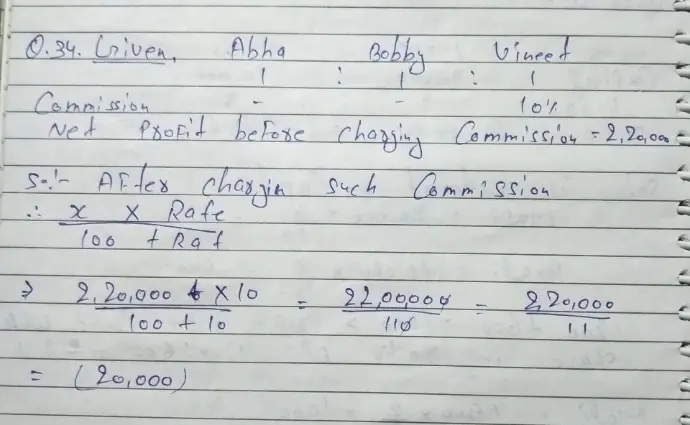 Q.34. Given, Abha Bobby Vineet
1 : 1 : 1
Commission - - 10%
Net Profit before charging Commission = 2,20,000
So:- AFter chargin such Commission
∴ x X Rate
100 + Rat
⇒ 2,20,000 X 10 = 22,00,000 = 2,20,000
100 + 10 110 11
= (20,000)